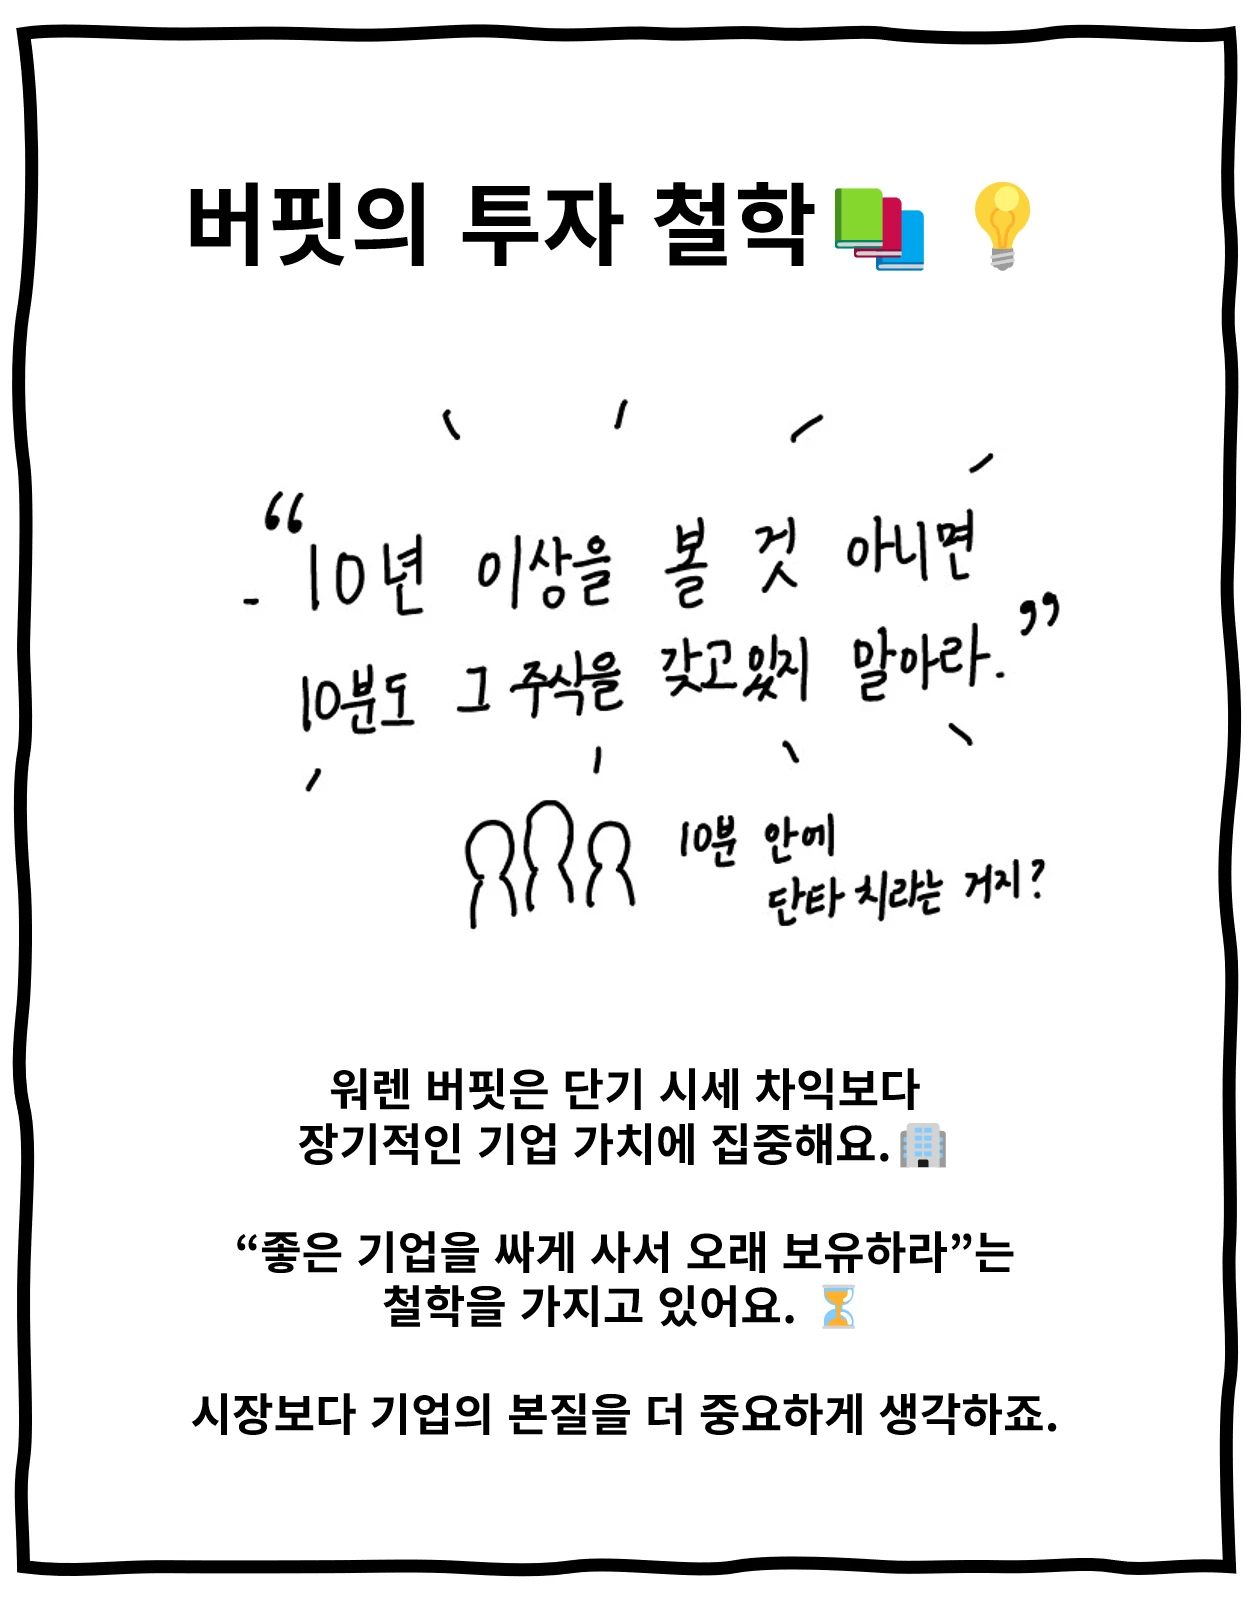 버핏의 투자 철학📚 💡
“10년 이상을 볼 것 아니면
10분도 그 주식을 갖고있지 말아라.”
10분 안에
단타 치라는 거지?
워렌 버핏은 단기 시세 차익보다
장기적인 기업 가치에 집중해요.🏢
“좋은 기업을 싸게 사서 오래 보유하라”는
철학을 가지고 있어요. ⏳
시장보다 기업의 본질을 더 중요하게 생각하죠.